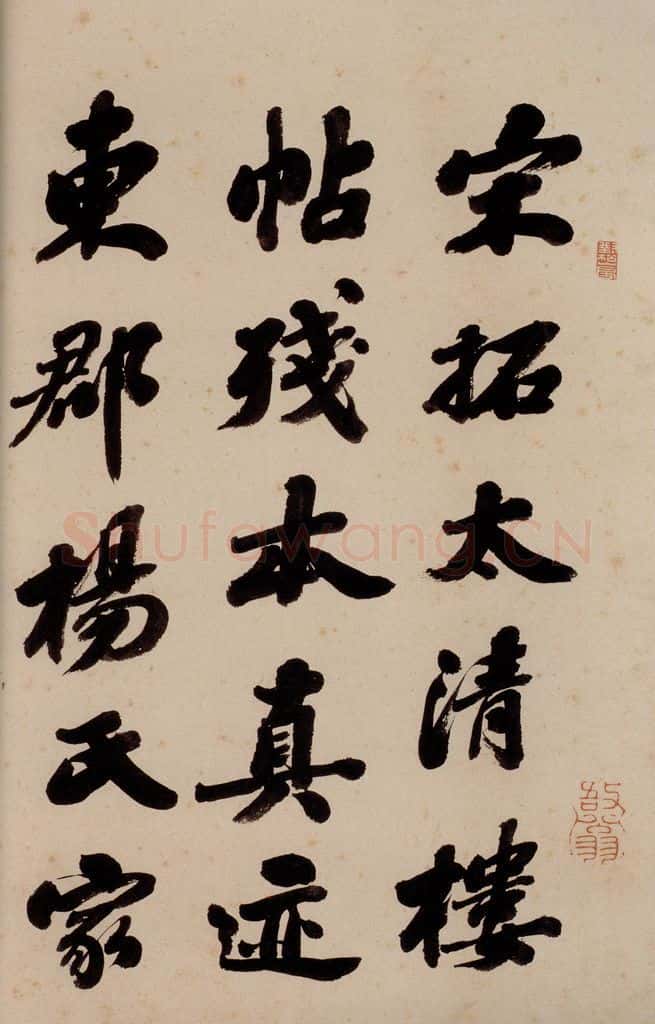 宋拓太清樓
帖殘本真迹
東郡楊氏家
Shufawang.CN